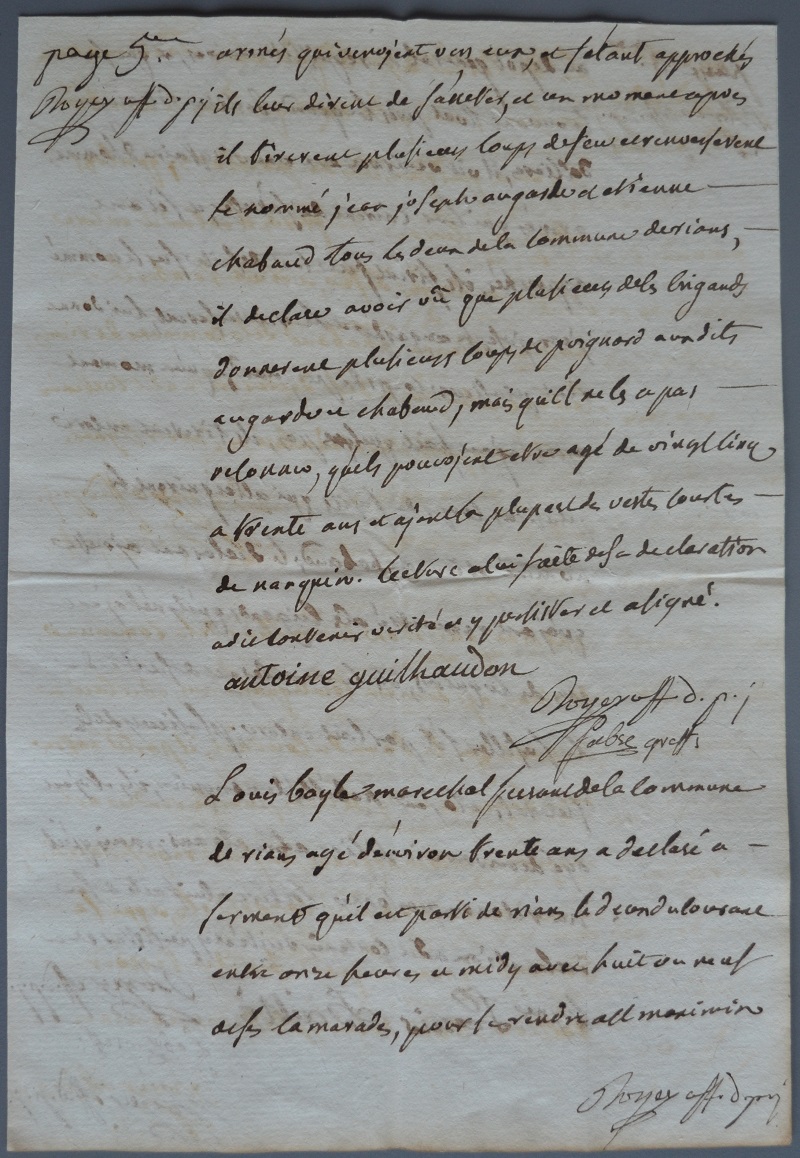 page 5.me armés qui venojent vers eux, et s'étant approchés
Royer off d. p. j ils leur dirent de s'arreter, et un moment apres
il tirerent plusieurs coups de feu et renverserent
le nommé jean joseph augarde et etienne
chabaud tous les deux de la commune de rians,
il declare avoir vû que plusieurs de ses brigands
donnerent plusieurs coups de poignard aux dits
augarde et chabaud, mais qu'il ne les a pas
reconnu, qu'ils pouvojent etre agé de vingt cinq
a trente ans et ajent la pluspart des vestes courtes
de nanquin. lecture a lui faite de sa declaration
a dit contenir verité et y persister et a signé.
antoine guilhaudon
Royer off d. p. j
greff
Louis bayle marechal ferrant de la commune
de rians agé d'environ trente ans a declaré a
serment qu'il est parti de rians le deux du courant
entre onze heures et midy avec huit ou neuf
de ses camarades, pour se rendre a st maximin
Royer off. d. p. j